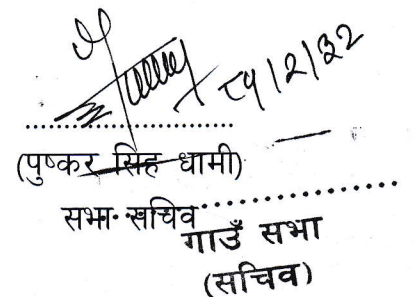 (पुष्कर सिंह धामी)
सभा-सचिव
गाउँ सभा
(सचिव)